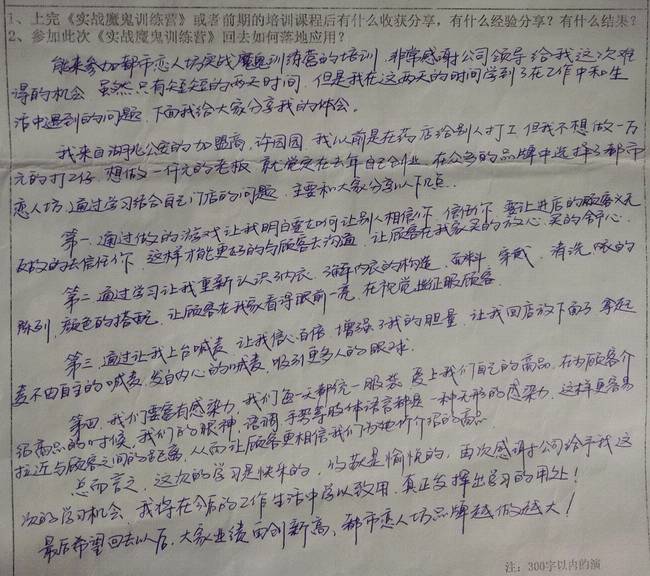 1、上完《实战魔鬼训练营》或者前期的培训课程后有什么收获分享，有什么经验分享？有什么结果？
2、参加此次《实战魔鬼训练营》回去如何落地应用？
能来参加都市恋人坊实战魔鬼训练营的培训，非常感谢公司领导给我这次难
得的机会，虽然只有短短的两天时间，但是我在这两天的时间学到了在工作中和生
活中遇到的问题，下面我给大家分享我的体会。
我来自湖北公安的加盟商，许园园，我以前是在药店给别人打工，但我不想做一万
元的打工仔，想做一仟元的老板，就决定在去年自己创业，在众多的品牌中选择了都市
恋人坊，通过学习结合自己门店的问题，主要和大家分享以下几点。
第一，通过做的游戏让我明白要如何让别人相信你，信任你，要让进店的顾客义无
反故的去信任你，这样才能更好的与顾客去沟通，让顾客在我家买的放心，买的舒心。
第二，通过学习让我重新认识了内衣，了解内衣的构造，面料，穿戴，清洗，内衣的
陈列，颜色的搭配，让顾客在我家看得眼前一亮，在视觉上征服顾客。
第三，通过让我上台喊麦，让我信心百倍，增强了我的胆量，让我回店放下面子，拿起
麦不由自主的喊麦，发自内心的喊麦，吸引更多人的眼球。
第四，我们要富有感染力，我们每一天都统一服装，爱上我们自己的商品，在为顾客介
绍商品的时候，我们的眼神，语调，手势等肢体语言都是一种无形的感染力，这样更容易
拉近与顾客之间的距离，从而让顾客更相信我们为她所介绍的商品。
总而言之，这次的学习是快乐的，收获是愉悦的，再次感谢公司给予我这
次的学习机会，我将在今后的工作生活中学以致用，真正发挥出学习的用处！
最后希望回去以后，大家业绩再创新高，都市恋人坊品牌越做越大！
注：300字以内的演